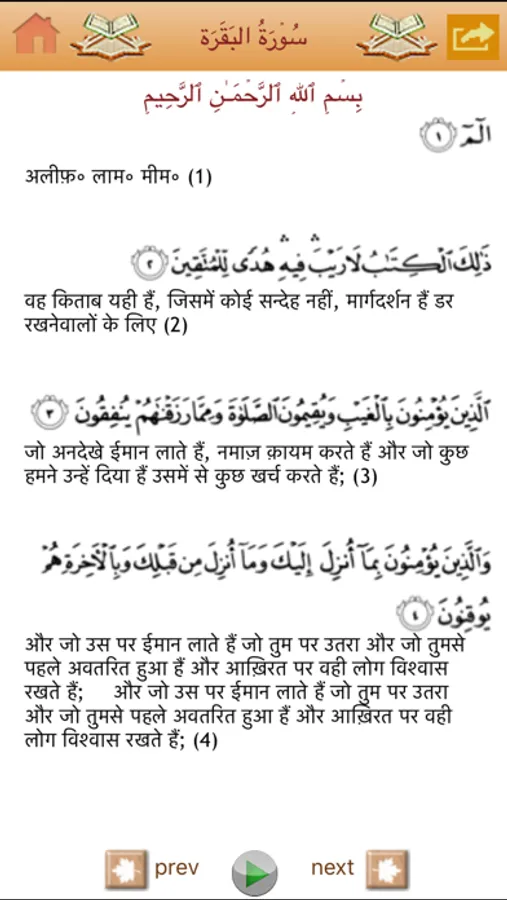 سُوْرَةُ البَقَرَة
بِسْمِ ٱللَّهِ ٱلرَّحْمَـٰنِ ٱلرَّحِيمِ
الٓمٓ ١
अलीफ़॰ लाम॰ मीम॰ (1)
ذَٰلِكَ الْكِتَابُ لَا رَيْبَ ۛ فِيهِ ۛ هُدًى لِّلْمُتَّقِينَ ٢
वह किताब यही हैं, जिसमें कोई सन्देह नहीं, मार्गदर्शन हैं डर
रखनेवालों के लिए (2)
الَّذِينَ يُؤْمِنُونَ بِالْغَيْبِ وَيُقِيمُونَ الصَّلَوٰةَ وَمِمَّا رَزَقْنَٰهُمْ يُنفِقُونَ ٣
जो अनदेखे ईमान लाते हैं, नमाज़ क़ायम करते हैं और जो कुछ
हमने उन्हें दिया हैं उसमें से कुछ खर्च करते हैं; (3)
وَالَّذِينَ يُؤْمِنُونَ بِمَآ أُنزِلَ إِلَيْكَ وَمَآ أُنزِلَ مِن قَبْلِكَ وَبِالْآخِرَةِ هُمْ
يُوقِنُونَ ٤
और जो उस पर ईमान लाते हैं जो तुम पर उतरा और जो तुमसे
पहले अवतरित हुआ हैं और आख़िरत पर वही लोग विश्वास
रखते हैं; और जो उस पर ईमान लाते हैं जो तुम पर उतरा
और जो तुमसे पहले अवतरित हुआ हैं और आख़िरत पर वही
लोग विश्वास रखते हैं; (4)
prev next